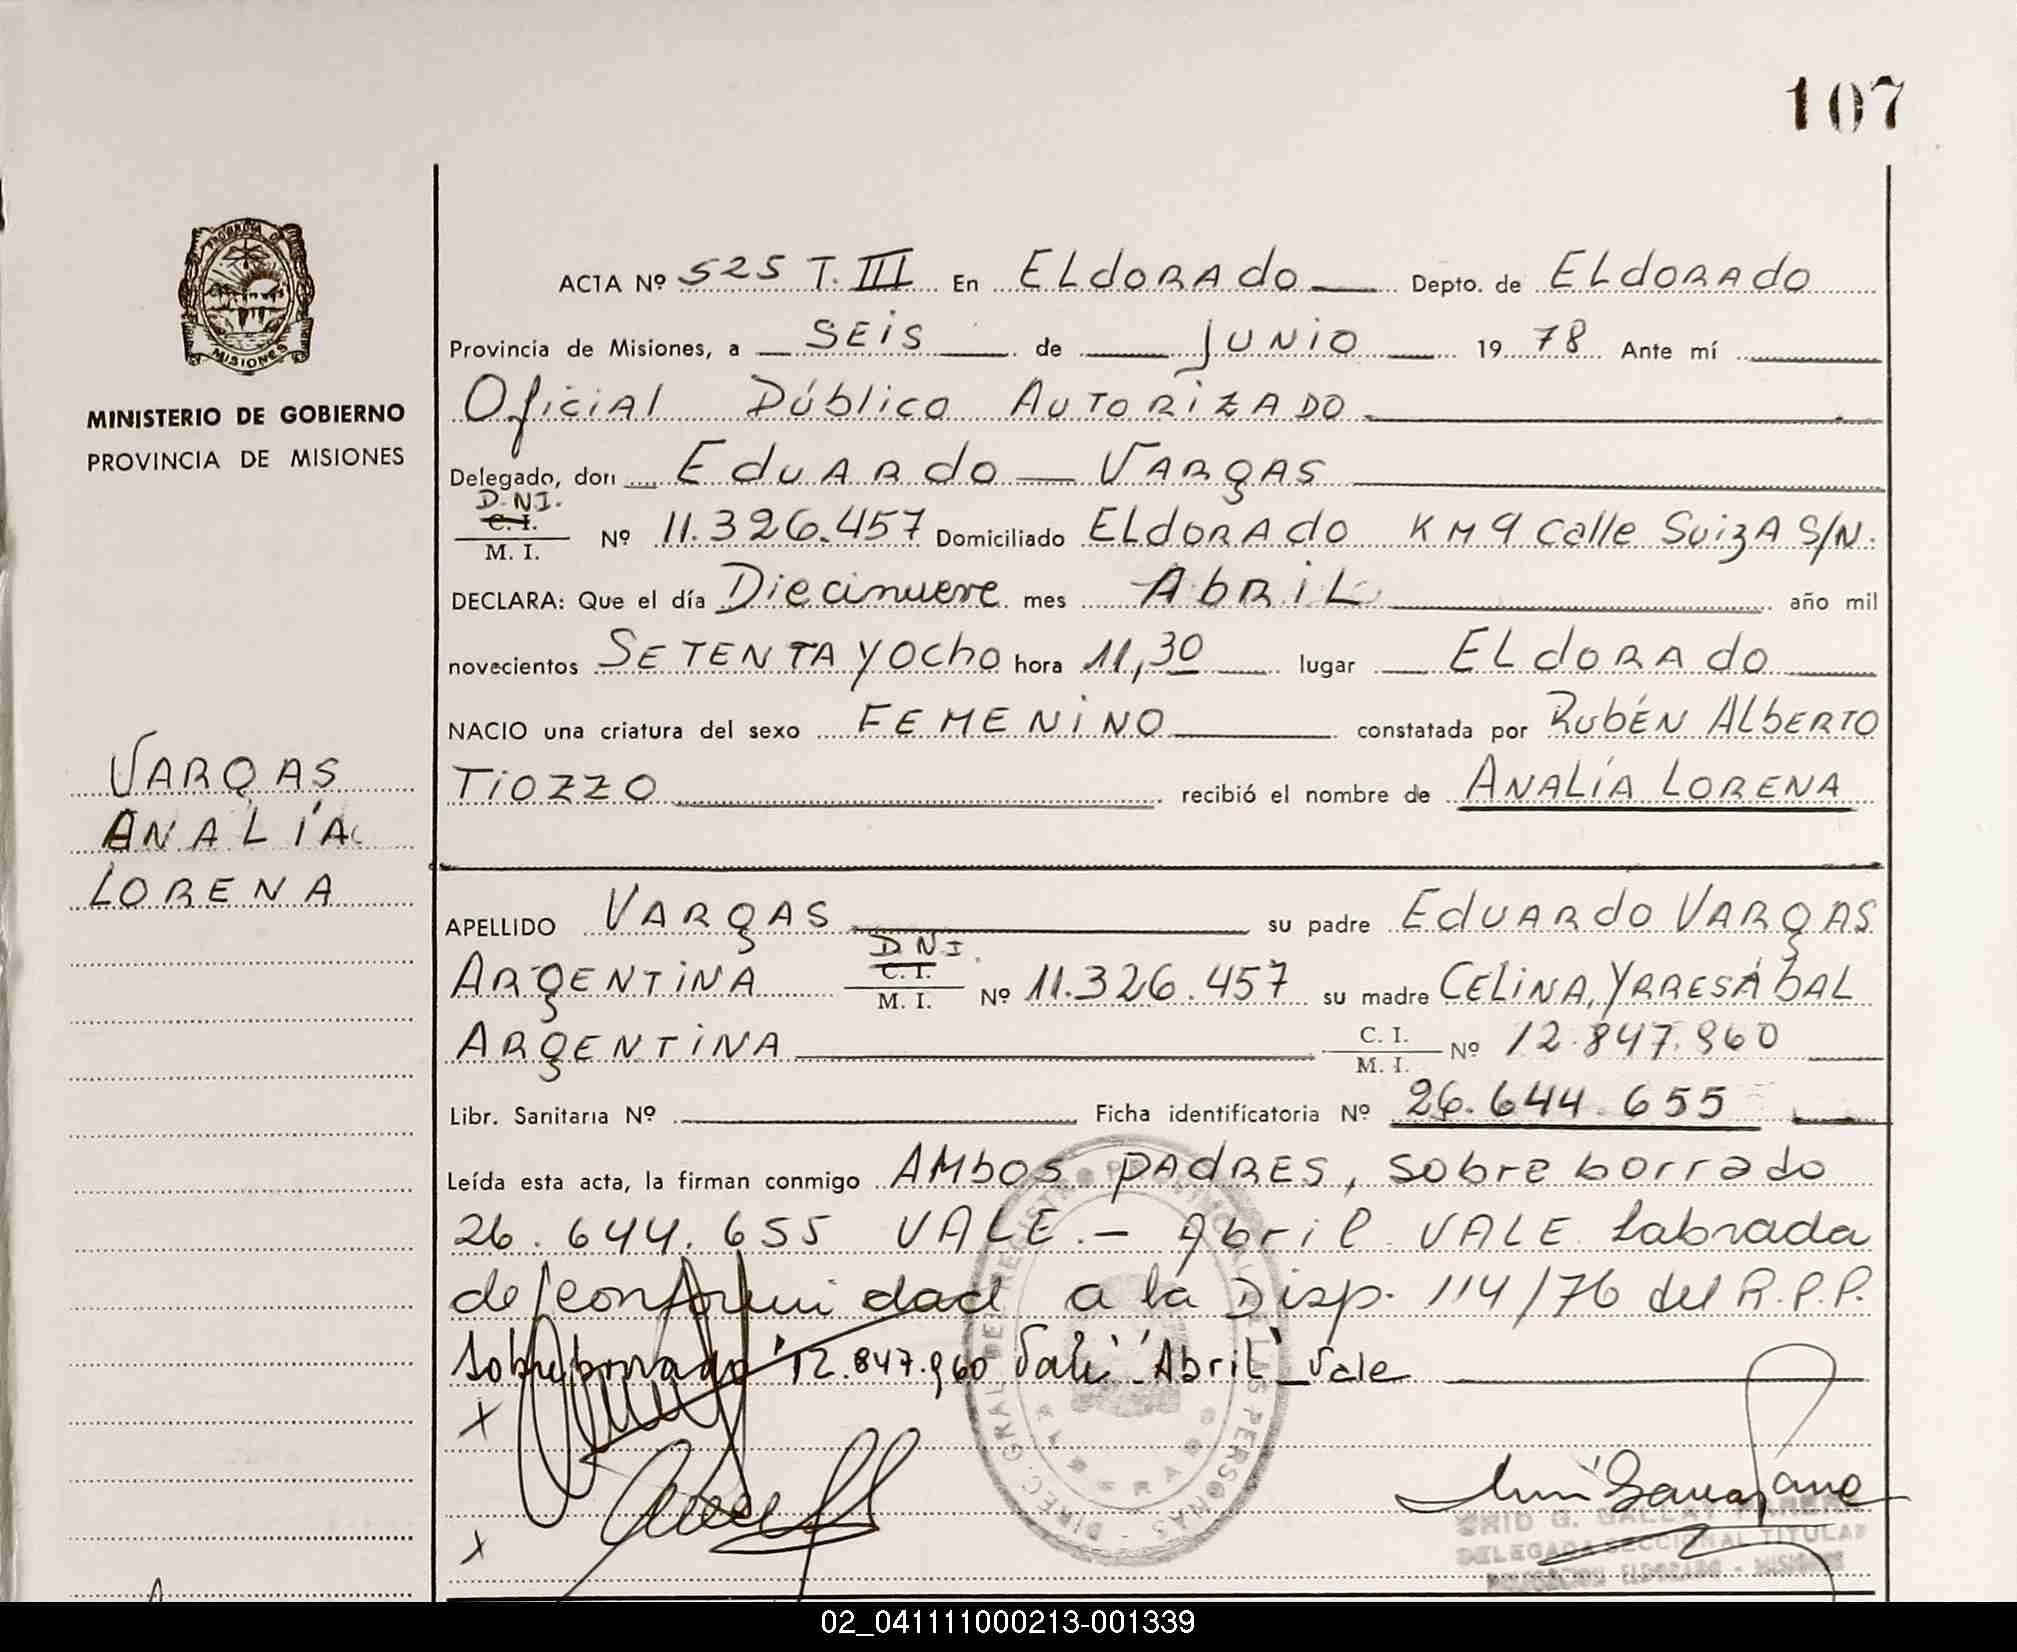 107
PROVINCIA DE
MISIONES
MINISTERIO DE GOBIERNO
PROVINCIA DE MISIONES
VARGAS
ANALÍA
LORENA
ACTA Nº 525 T. III En ELdORAdo Depto. de ELdORAdo
Provincia de Misiones, a SEiS de JUNiO 1978 Ante mí
Oficial Público AUTORIZADO
Delegado, don EdUARdo VARGAS
D.N.I.
C. I.
M. I. Nº 11.326.457 Domiciliado ELdORAdo KM 9 calle SuizA S/N.
DECLARA: Que el día Diecinueve mes AbRiL año mil
novecientos SETENTA y OCho hora 11,30 lugar ELdORAdo
NACIO una criatura del sexo FEMENiNO constatada por RUbÉN ALbERTO
TiOZZO recibió el nombre de ANALÍA LORENA
APELLIDO VARGAS su padre EdUARdo VARGAS
ARGENTiNA D N I. C. I. M. I. Nº 11.326.457 su madre CELiNA, YRRESÁbAL
ARGENTiNA C. I. M. I. Nº 12.847.960
Libr. Sanitaria Nº Ficha identificatoria Nº 26.644.655
Leída esta acta, la firman conmigo AMbOS PAdRES, sobre borrado
26.644.655 VALE.- Abril VALE labrada
de conformidad a la Disp. 114/76 del R.P.P.
sobreborrado "12.847.960 Vale" "Abril" Vale
x
x
DIREC. GRAL DEL REGISTRO PROVINCIAL DE LAS PERSONAS
DELEGADA SECCIONAL TITULAR
DELEGACION ELDORADO - MISIONES
02_041111000213-001339